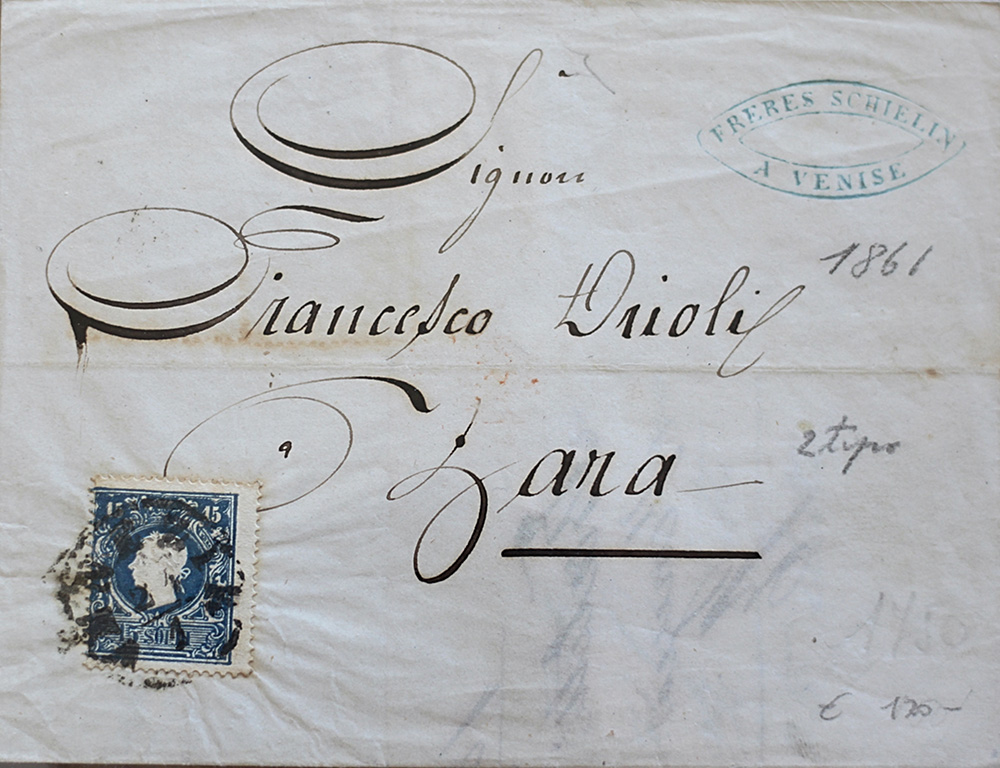 FRERES SCHIELIN
A VENISE
Signor
1861
Francesco Drioli
2 tipo
a
Zara
15 15
15 SOLDI
€ 120-